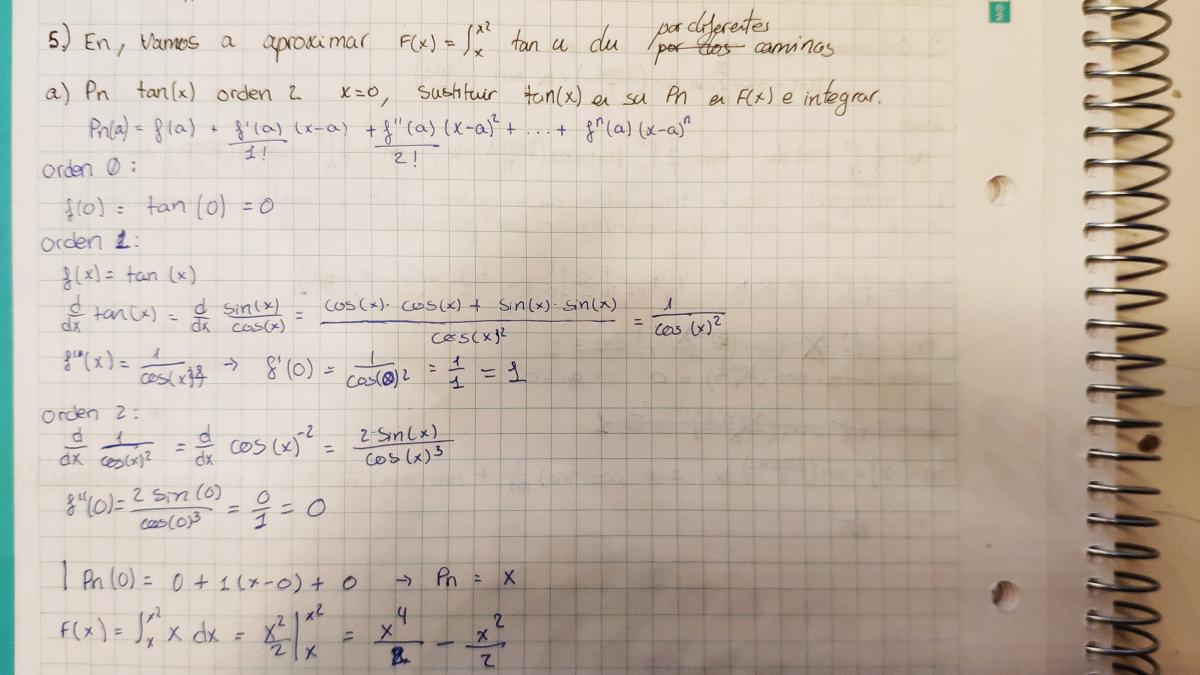 5.) En, Vamos a aproximar F(x) = ∫ₓ^x² tan u du por diferentes ~~por dos~~ caminos
a) Pn tan(x) orden 2 x=0, sustituir tan(x) en su Pn en F(x) e integrar.
Pn(a) = f(a) + f'(a)/1! (x-a) + f''(a)/2! (x-a)² + ... + fⁿ(a) (x-a)ⁿ
orden 0:
f(0) = tan(0) = 0
orden 1:
f(x) = tan (x)
d/dx tan(x) = d/dx sin(x)/cos(x) = (cos(x)· cos(x) + sin(x)· sin(x))/cos(x)² = 1/cos(x)²
f'(x) = 1/cos(x)² → f'(0) = 1/cos(0)² = 1/1 = 1
orden 2:
d/dx 1/cos(x)² = d/dx cos(x)⁻² = 2·sin(x)/cos(x)³
f''(0) = 2 sin(0)/cos(0)³ = 0/1 = 0
| Pn(0) = 0 + 1(x-0) + 0 → Pn = x
F(x) = ∫ₓ^x² x dx = x²/2 |ₓ^x² = x⁴/2 - x²/2